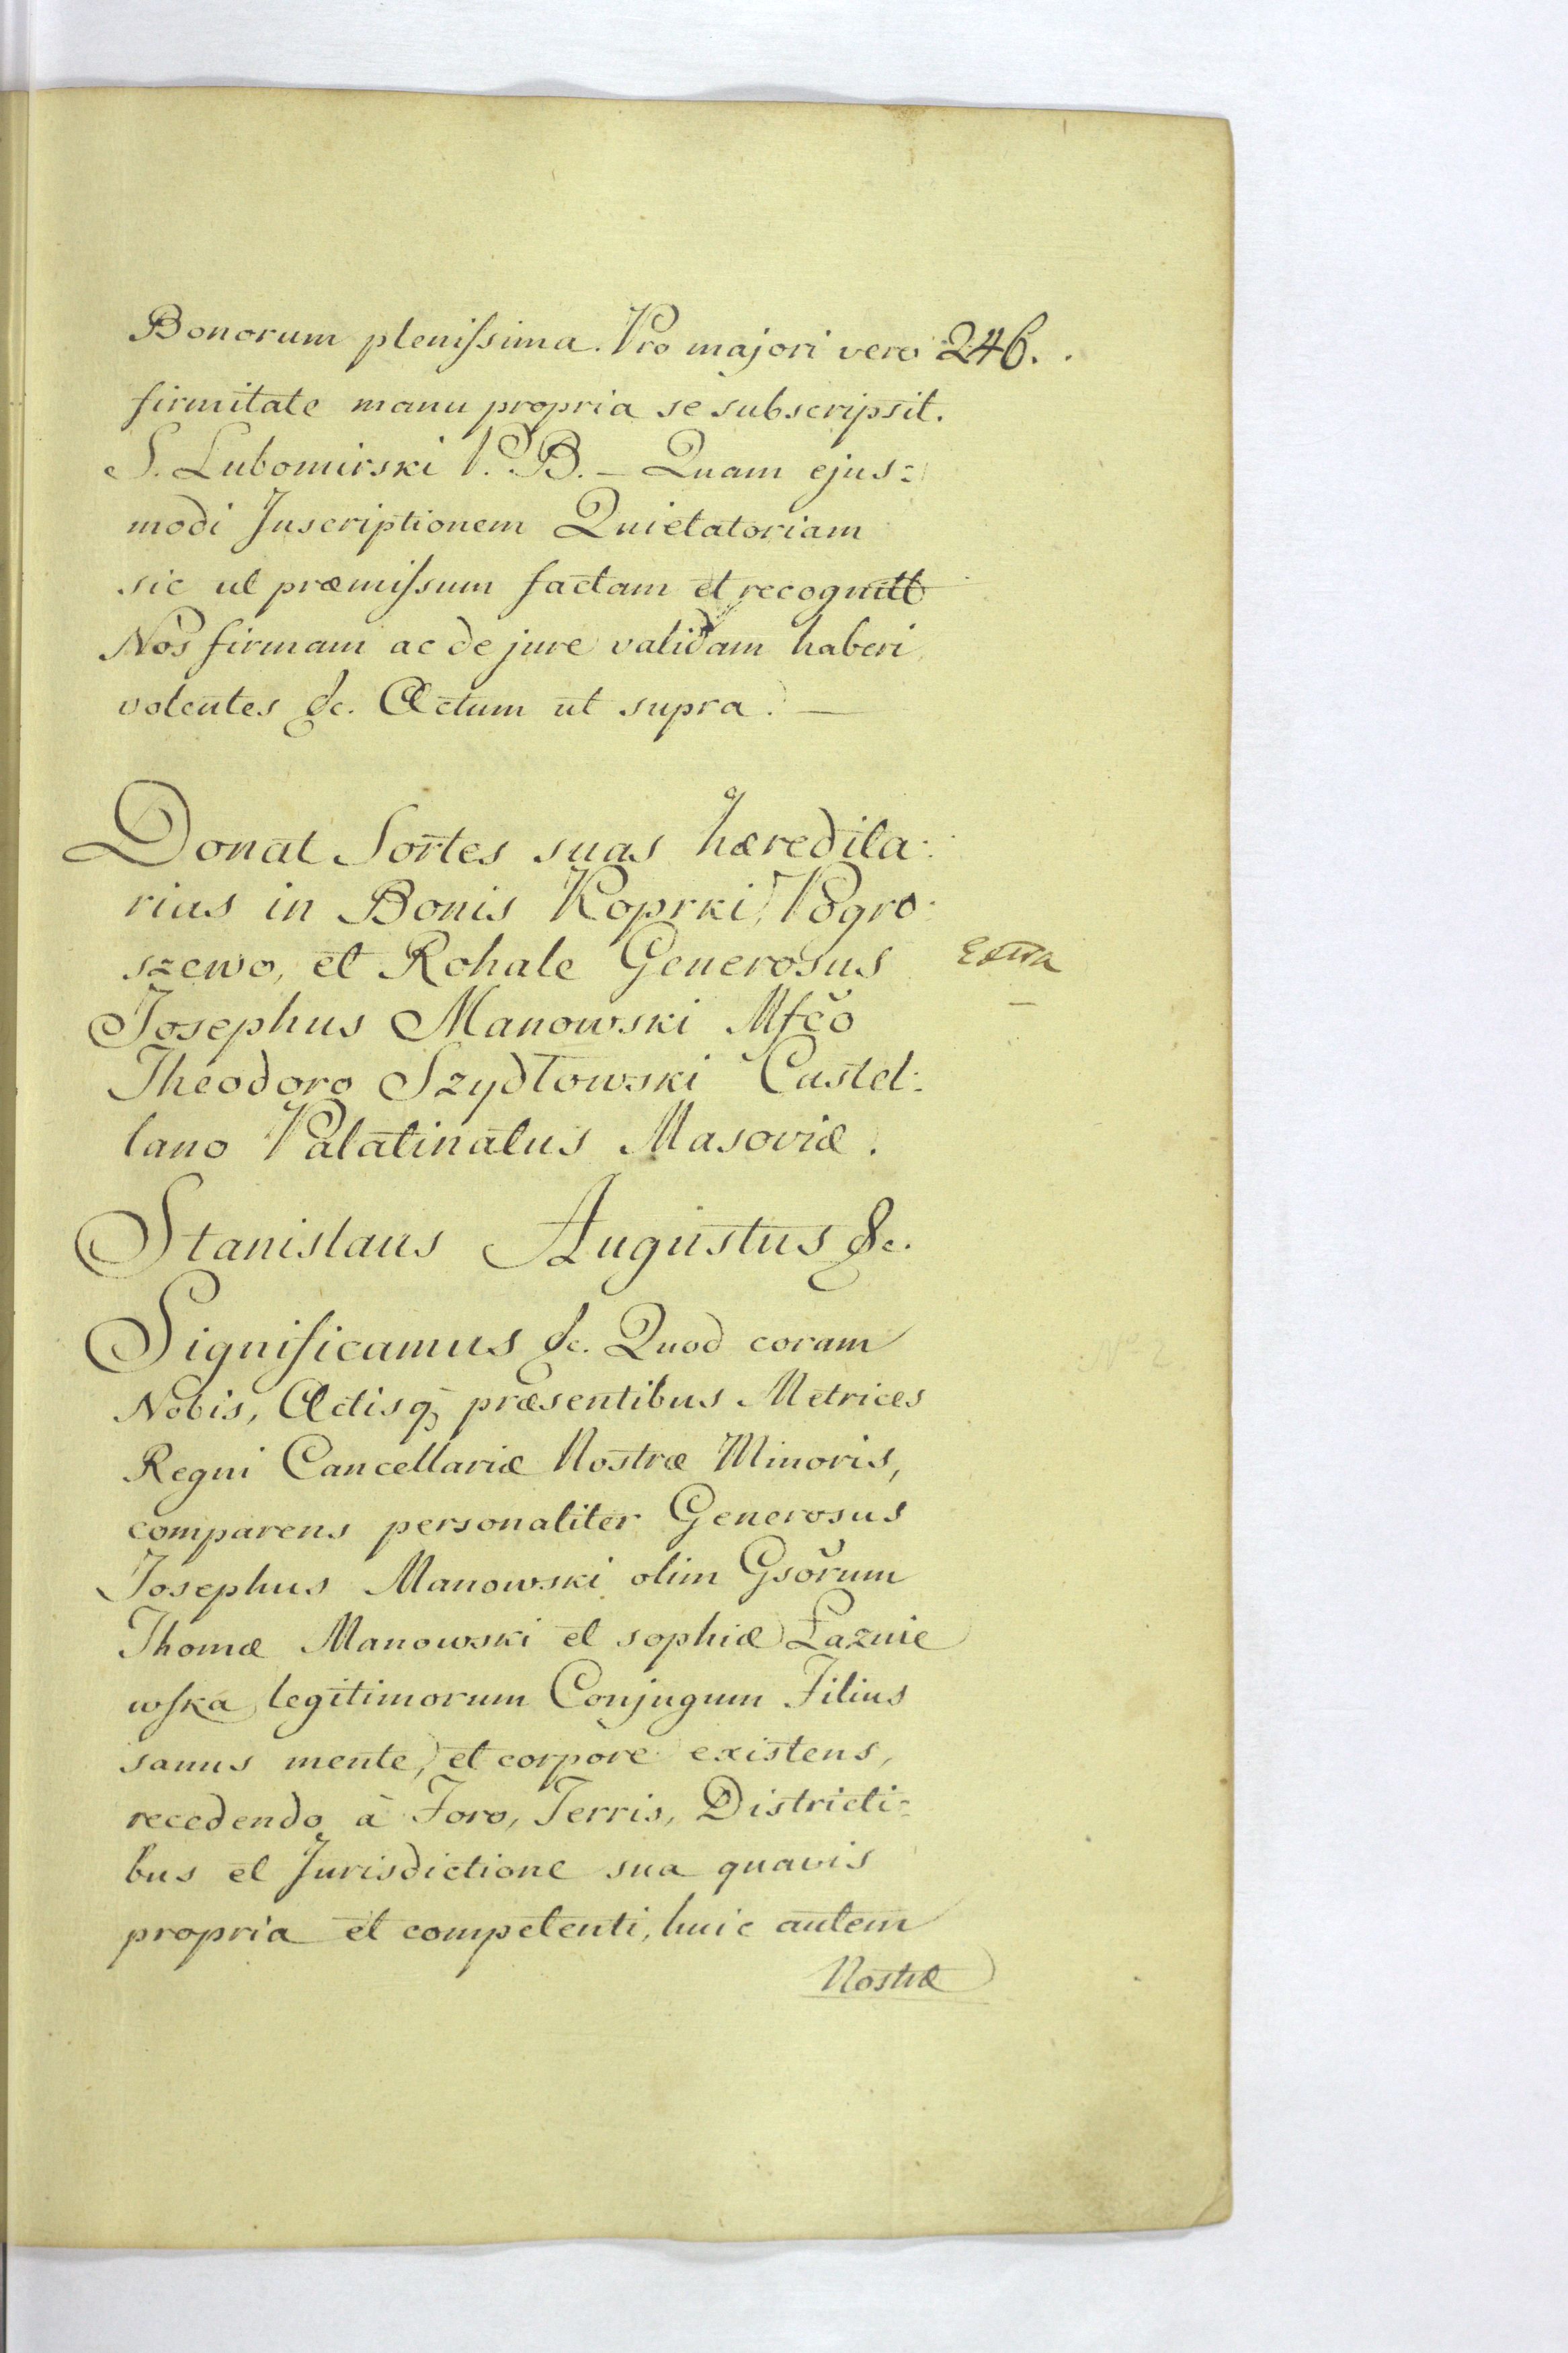 Bonorum pleniſsima. Pro majori vero 246.
firmitate manu propria se subscripsit.
S. Lubomirski P. B. – Quam ejus=
modi Inscriptionem Quietatoriam
sic ut præmiſsum factam et recognitt
Nos firmam ac de jure validam haberi
volentes &c. Actum ut supra. —
Donat Sortes suas hæredita:
rias in Bonis Koprki, Pogro:
szewo, et Rohale Generosus
Extra
Josephus Manowski Mfčo
Theodoro Szydłowski Castel:
lano Palatinatus Masoviæ.
Stanislaus Augustus &c.
Significamus &c. Quod coram
Nobis, Actisq, præsentibus Metrices
Regni Cancellariæ Nostræ Minoris,
comparens personaliter Generosus
Josephus Manowski olim Gsorum
Thomæ Manowski et sophiæ Łaznie
wſka legitimorum Conjugum Filius
sanus mente, et corpore existens,
recedendo à Foro, Terris, Districti=
bus et Jurisdictione sua quavis
propria et competenti, huic autem
Nostræ